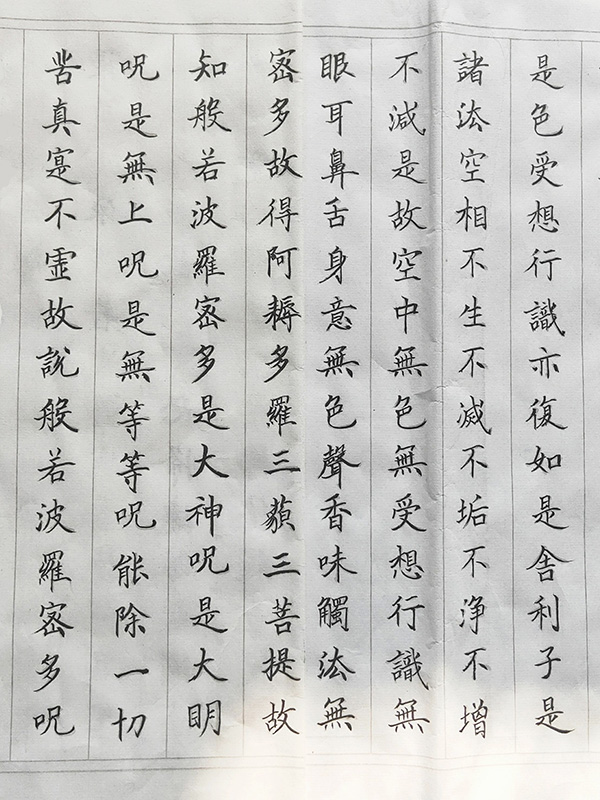 是色受想行識亦復如是舍利子是
諸法空相不生不滅不垢不淨不增
不減是故空中無色無受想行識無
眼耳鼻舌身意無色聲香味觸法無
密多故得阿耨多羅三藐三菩提故
知般若波羅密多是大神呪是大明
呪是無上呪是無等等呪能除一切
苦真寔不虛故說般若波羅密多呪